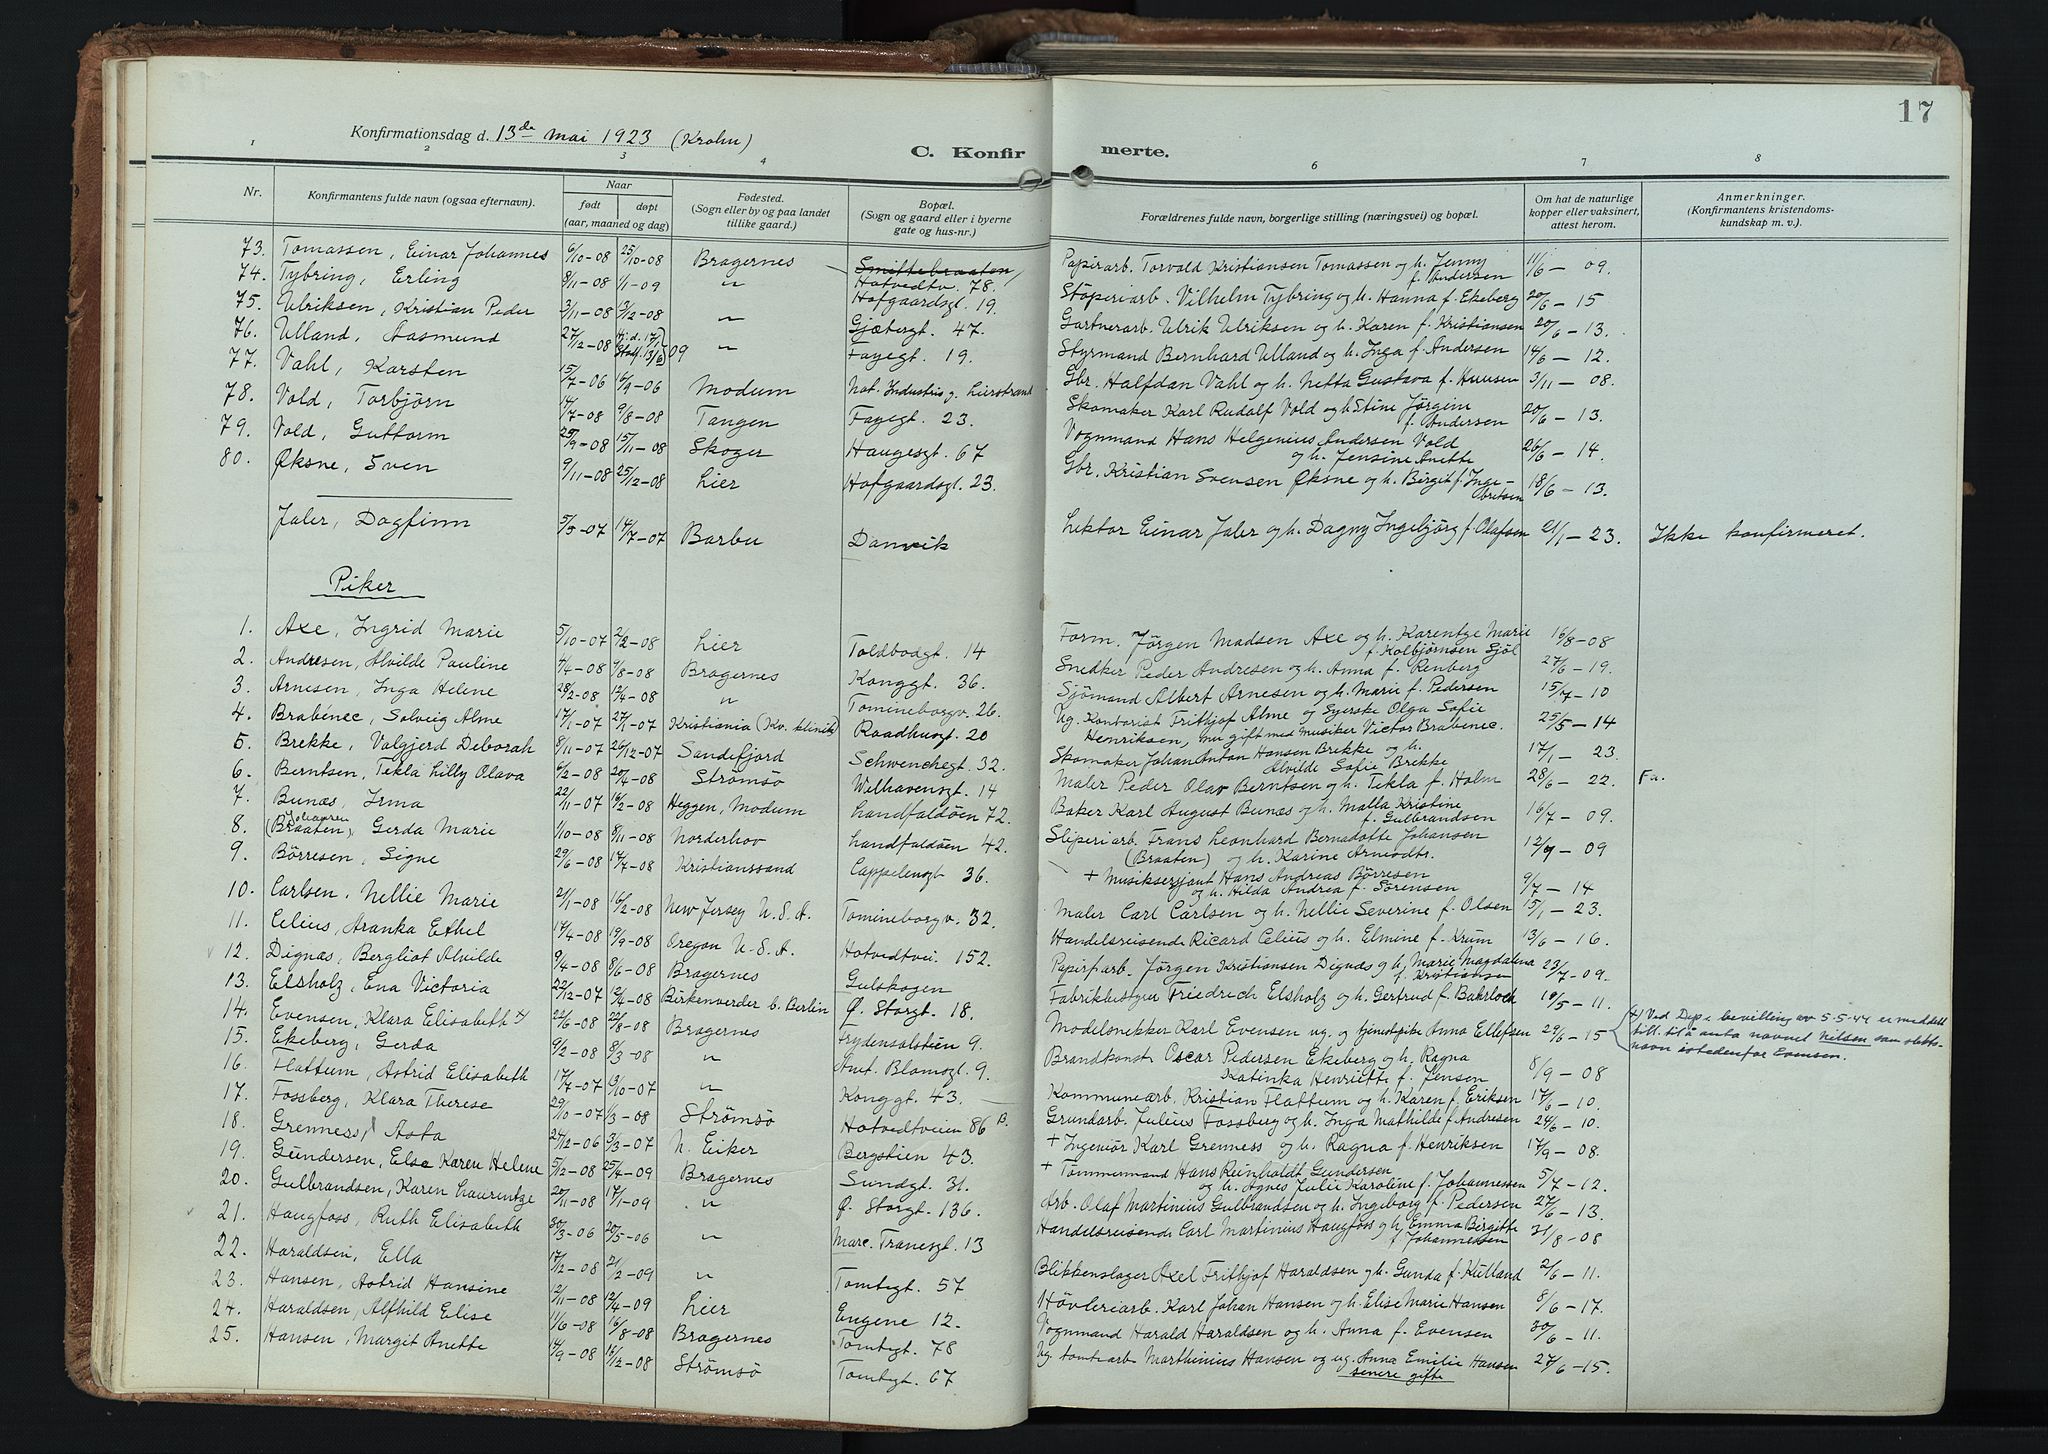 17
Konfirmationsdag d. 13de mai 1923 (Krohn)
C. Konfirmerte.
1 2 3 4 6 7 8
Nr. Konfirmantens fulde navn (ogsaa efternavn). Naar født døpt (aar, maaned og dag) Fødested. (Sogn eller by og paa landet tillike gaard.) Bopæl. (Sogn og gaard eller i byerne gate og hus-nr.) Forældrenes fulde navn, borgerlige stilling (næringsvei) og bopæl. Om hat de naturlige kopper eller vaksinert, attest herom. Anmerkninger. (Konfirmantens kristendoms-kundskap m. v.).
73. Tomassen, Einar Johannes 6/10-08 25/10-08 Bragernes Smittebraaten Hotvedtv. 78. Papirarb. Torvald Kristiansen Tomassen og h. Jenny f. Andersen 11/6 - 09.
74. Tybring, Erling 8/11-08 1/1-09 " Hofgaardsgt. 19. Støperiarb. Vilhelm Tybring og h. Hanna f. Ekeberg 20/6 - 15
75. Ulriksen, Kristian Peder 3/11-08 13/12-08 " Gjætergt. 47. Gartnerarb. Ulrik Ulriksen og h. Karen f. Kristiansen 20/6 - 13.
76. Ulland, Aasmund 27/12-08 Hj.d. 17/1 Stadf. 13/6 09 " Fayegt. 19. Styrmand Bernhard Ulland og h. Inga f. Andersen 14/6 - 12.
77. Vahl, Karsten 15/7-06 16/9-06 Modum Nat. Industris g. Lierstrand Gbr. Halfdan Vahl og h. Netta Gustava f. Huusen 3/11 - 08.
78. Vold, Torbjörn 14/7-08 9/8-08 Tangen Fayegt. 23. Skomaker Karl Rudolf Vold og h. Stine Jörgine f. Andersen 20/6 - 13.
79. Vold, Guttorm 25/9-08 15/11-08 Skoger Haugesgt. 67 Vognmand Hans Helgenius Andersen Vold og h. Jensine Anette 26/6 - 14.
80. Øksne, Sven 9/11-08 25/12-08 Lier Hofgaardsgt. 23. Gbr. Kristian Svensen Øksne og h. Birgit f. Ingebretsen 18/6 - 13.
Jaler, Dagfinn 5/5-07 14/7-07 Barbu Danvik Lektor Einar Jaler og h. Dagny Ingebjörg f. Olafsen 21/1 - 23. Ikke konfirmeret.
Piker
1. Axe, Ingrid Marie 5/10-07 2/2-08 Lier Toldbodgt. 14 Form. Jørgen Madsen Axe og h. Karentze Marie f. Kolbjørnsen Sjöl 16/8-08
2. Andresen, Alvilde Pauline 4/4-08 7/8-08 Bragernes Konggt. 36. Snedker Peder Andresen og h. Anna f. Renberg 27/6 - 19.
3. Arnesen, Inga Helene 28/2-08 12/4-08 " Tomineborgv. 26. Sjömand Albert Arnesen og h. Marie f. Pedersen 15/7 - 10
4. Brabénec, Solveig Alme 17/1-07 27/1-07 Kristiania (Kv. klinik) Raadhusgt. 20 Ug. Kontorist Frithjof Alme og Syerske Olga Sofie Henriksen, nu gift med musiker Victor Brabenec. 25/5 - 14
5. Brekke, Valgjerd Deborah 8/11-07 26/12-07 Sandefjord Schwenchegt. 32. Skomaker Johan Anton Hansen Brekke og h. Alvilde Sofie Brekke 17/1 - 23.
6. Berntsen, Tekla Lilly Olava 6/2-08 20/4-08 Strømsø Welhavensgt. 14 Maler Peder Olav Berntsen og h. Tekla f. Holm 28/6 - 22. Fa.
7. Bunæs, Irma 22/11-07 16/2-08 Heggen, Modum Landfaldöen 72. Baker Karl August Bunæs og h. Malla Kristine f. Gulbrandsen 16/7 - 09.
8. Johansen (Braaten), Gerda Marie 1/10-08 8/11-08 Norderhov Landfaldöen 42. Sliperiarb. Frans Leonhard Bernadotte Johansen (Braaten) og h. Karine Arnedtr. 12/9 - 09
9. Børresen, Signe 29/6-08 17/7-08 Kristianssand Cappelensgt 36. + Musiksersjant Hans Andreas Børresen og h. Hilda Andrea f. Sørensen 9/7 - 14
10. Carlsen, Nellie Marie 21/1-08 16/2-08 New Jersey U.S.A. Tomineborgv. 32. Maler Carl Carlsen og h. Nellie Severine f. Olsen 15/1 - 23.
11. Celius, Aranka Ethel 14/4-08 19/9-08 Oregon U.S.A. Hotvedtvei. 152. Handelsreisende Ricard Celius og h. Elmine f. Krum 13/6 - 16.
12. Dignæs, Bergliot Alvilde 9/4-08 8/6-08 Bragernes Gulskogen Papirfarb. Jörgen Kristiansen Dignæs og h. Marie Magdalena f. Kristiansen 23/7 - 09.
13. Elsholz, Ena Victoria 22/12-07 12/4-08 Birkenverder b. Berlin Ø. Storgt. 18. Fabrikbestyrer Friedrich Elsholz og h. Gertrud f. Bahrloch 19/5 - 11.
14. Evensen, Klara Elisabeth x) 22/6-08 22/8-08 Bragernes Frydensalstien 9. Modelsnekker Karl Evensen ug. og tjenestpike Anna Ellefsen 29/6 - 15 x) Ved Dep.s bevilling av 5-5-44 er meddelt till. til å anta navnet Nilsen som slektsnavn istedenfor Evensen.
15. Ekeberg, Gerda 9/2-08 8/3-08 " Amt. Blomsgt. 9. Brandkonst. Oscar Pedersen Ekeberg og h. Ragna Katinka Henriette f. Jensen 8/9 - 08
16. Flattum, Astrid Elisabeth 17/7-07 13/10-07 " Konggt. 43. Kommunearb. Kristian Flattum og h. Karen f. Eriksen 17/6 - 10.
17. Fossberg, Klara Therese 29/10-07 1/3-08 Strömsö Hotvedtveien 86 B. Grundarb. Julius Fossberg og h. Inga Mathilde f. Andresen 24/6 - 10.
18. Grenness, Asta 24/12-06 3/3-07 N. Eiker Bergstien 43. + Ingeniör Karl Grenness og h. Ragna f. Henriksen 17/9 - 08.
19. Gundersen, Else Karen Helene 5/12-08 25/4-09 Bragernes Sundgt. 31. + Tömmermand Hans Reinholdt Gundersen og h. Agnes Julie Karoline f. Johannessen 5/7 - 12.
20. Gulbrandsen, Karen Laurentze 20/11-08 17/1-09 " Ø. Storgt. 136. Arb. Olaf Martinius Gulbrandsen og h. Ingeborg f. Pedersen 27/6 - 13.
21. Haugfoss, Ruth Elisabeth 30/3-06 20/5-06 " Marc. Tranesgt. 13 Handelsreisende Carl Martinius Haugfoss og h. Emma Birgitte f. Johannessen 31/8 - 08
22. Haraldsen, Ella 17/12-08 21/2-09 " Tomtegt. 57 Blikkenslager Axel Frithjof Haraldsen og h. Gunda f. Kulland 2/6 - 11.
23. Hansen, Astrid Hansine 12/11-08 12/4-09 Lier Engene 12. Hövleriarb. Karl Johan Hansen og h. Elise Marie Hansen 8/6 - 17.
24. Haraldsen, Alfhild Elise 11/6-08 16/8-08 Bragernes Tomtegt. 78 Vognmand Harald Haraldsen og h. Anna f. Evensen 30/6 - 11.
25. Hansen, Margit Anette 14/9-08 16/12-08 Strömsö Tomtegt. 67 Ug. tomtearb. Marthinius Hansen og ug. Anna Emilie Hansen senere gifte 27/6 - 15.